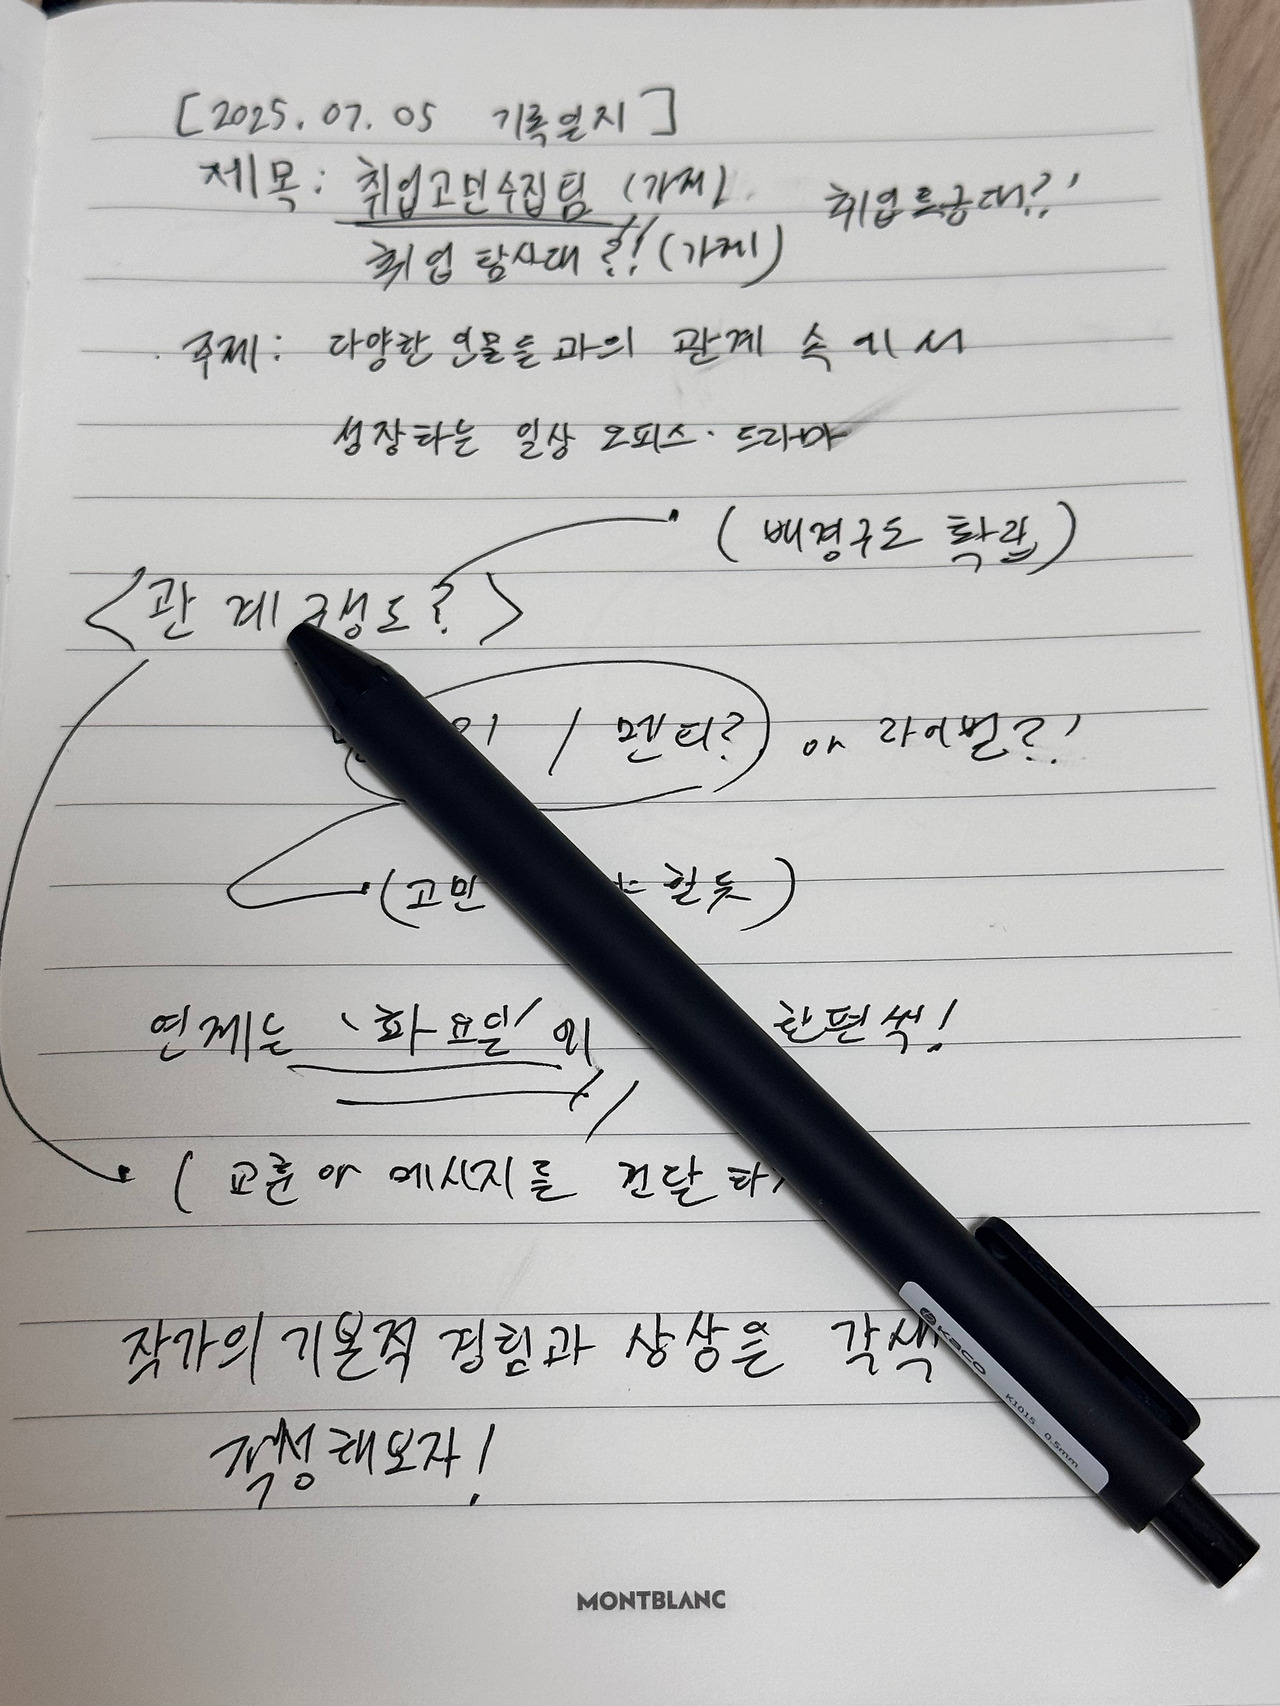 [2025.07.05 기록일지]
제목: 취업고민수집팀 (가제) 취업특공대?!
취업 탐사대?!! (가제)
주제: 다양한 인물들과의 관계 속에서
성장하는 일상 오피스·드라마
(배경구도 확립)
<관계 형도?>
/ 멘티?) or 라이벌?!
(고민 할듯)
연재는 '화요일'에 한편씩!
(교훈 or 메시지를 전달하
작가의 기본적 경험과 상상을 각색
작성해보자!
kaco K1015 0.5mm
MONTBLANC